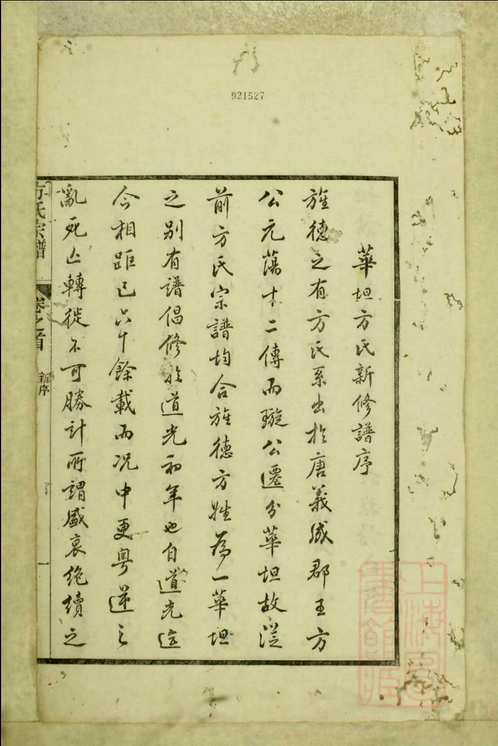 921527
華坦方氏新修譜序
旌德之有方氏系出於唐義成郡王方
公元蕩十二傳而璇公遷分華坦故從
前方氏宗譜均合旌德方姓為一華坦
之別有譜倡修於道光初年也自道光迄
今相距已六十餘載而況中更粵逆之
亂死亡轉徙不可勝計所謂盛衰絕續之
方氏宗譜
卷之首
新序
一
上海圖書館藏